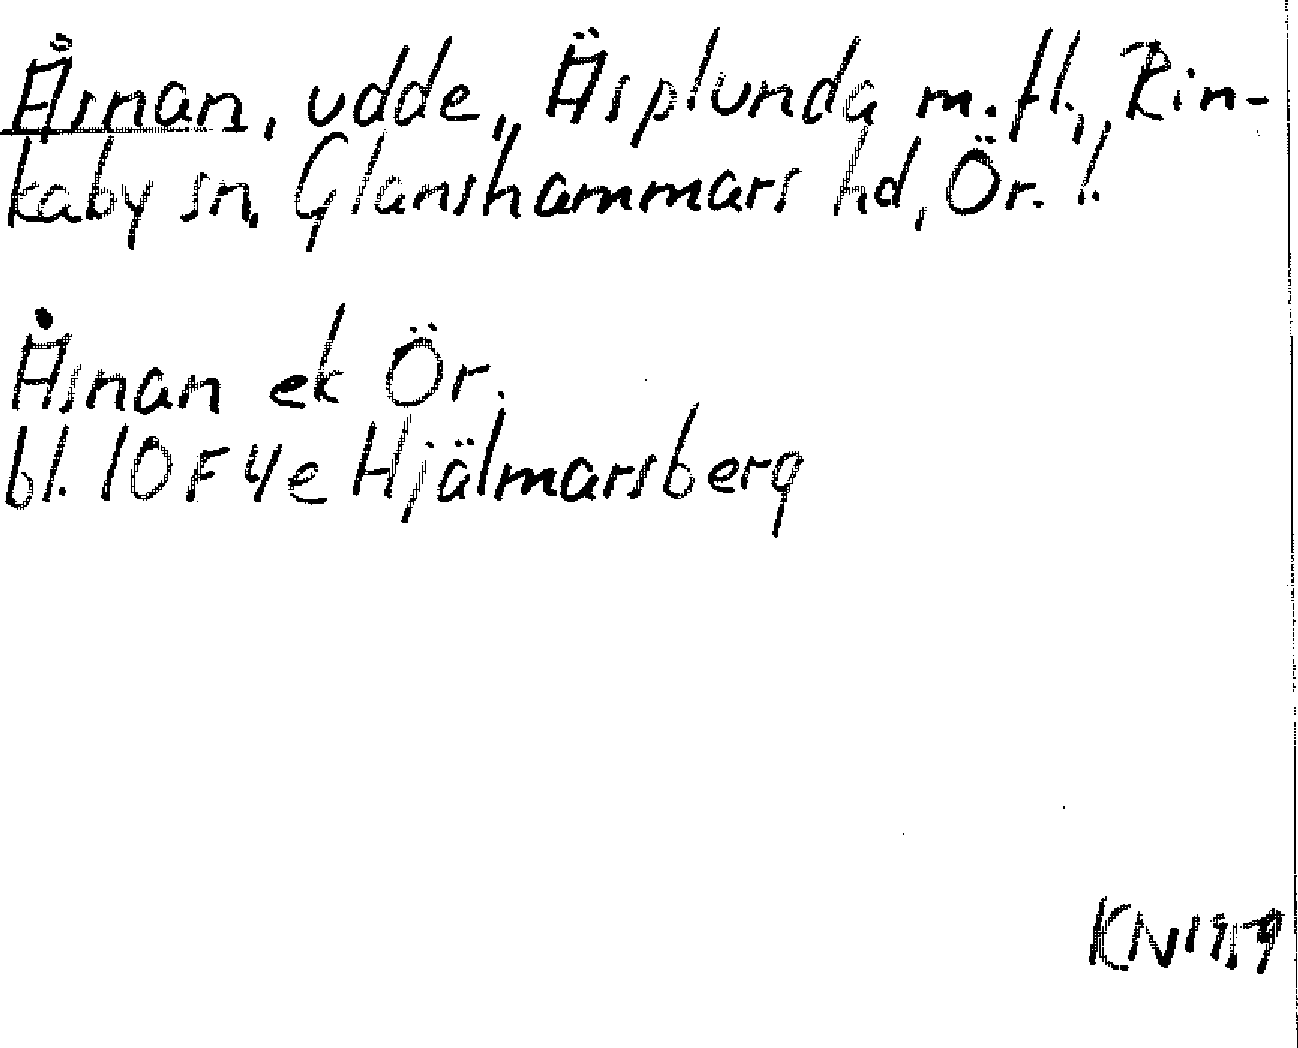 Åsnan, udde, Äsplunda m. fl., Rin-
kaby sn, Glanshammars hd, Ör. l.
Åsnan ek Ör.
bl. 10 F 4e Hjälmarsberg
KN